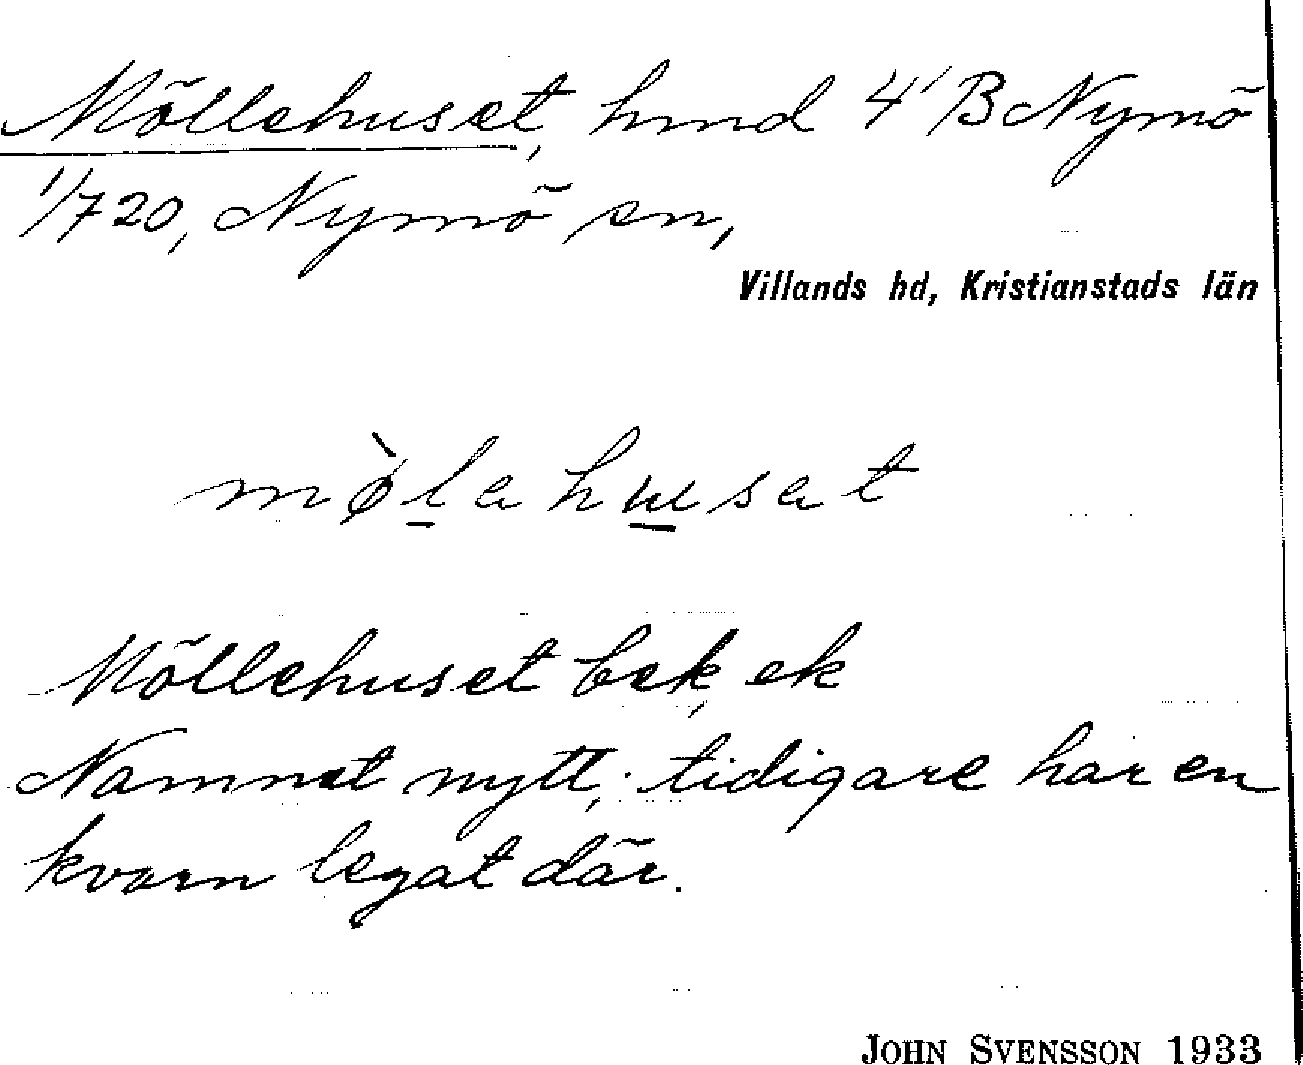 Möllehuset, hmd 4' B Nymö
1/720, Nymö sn,
Villands hd, Kristianstads län
mø̀lahusat
Möllehuset bek, ek
Namnet nytt, tidigare har en
kvarn legat där.
JOHN SVENSSON 1933